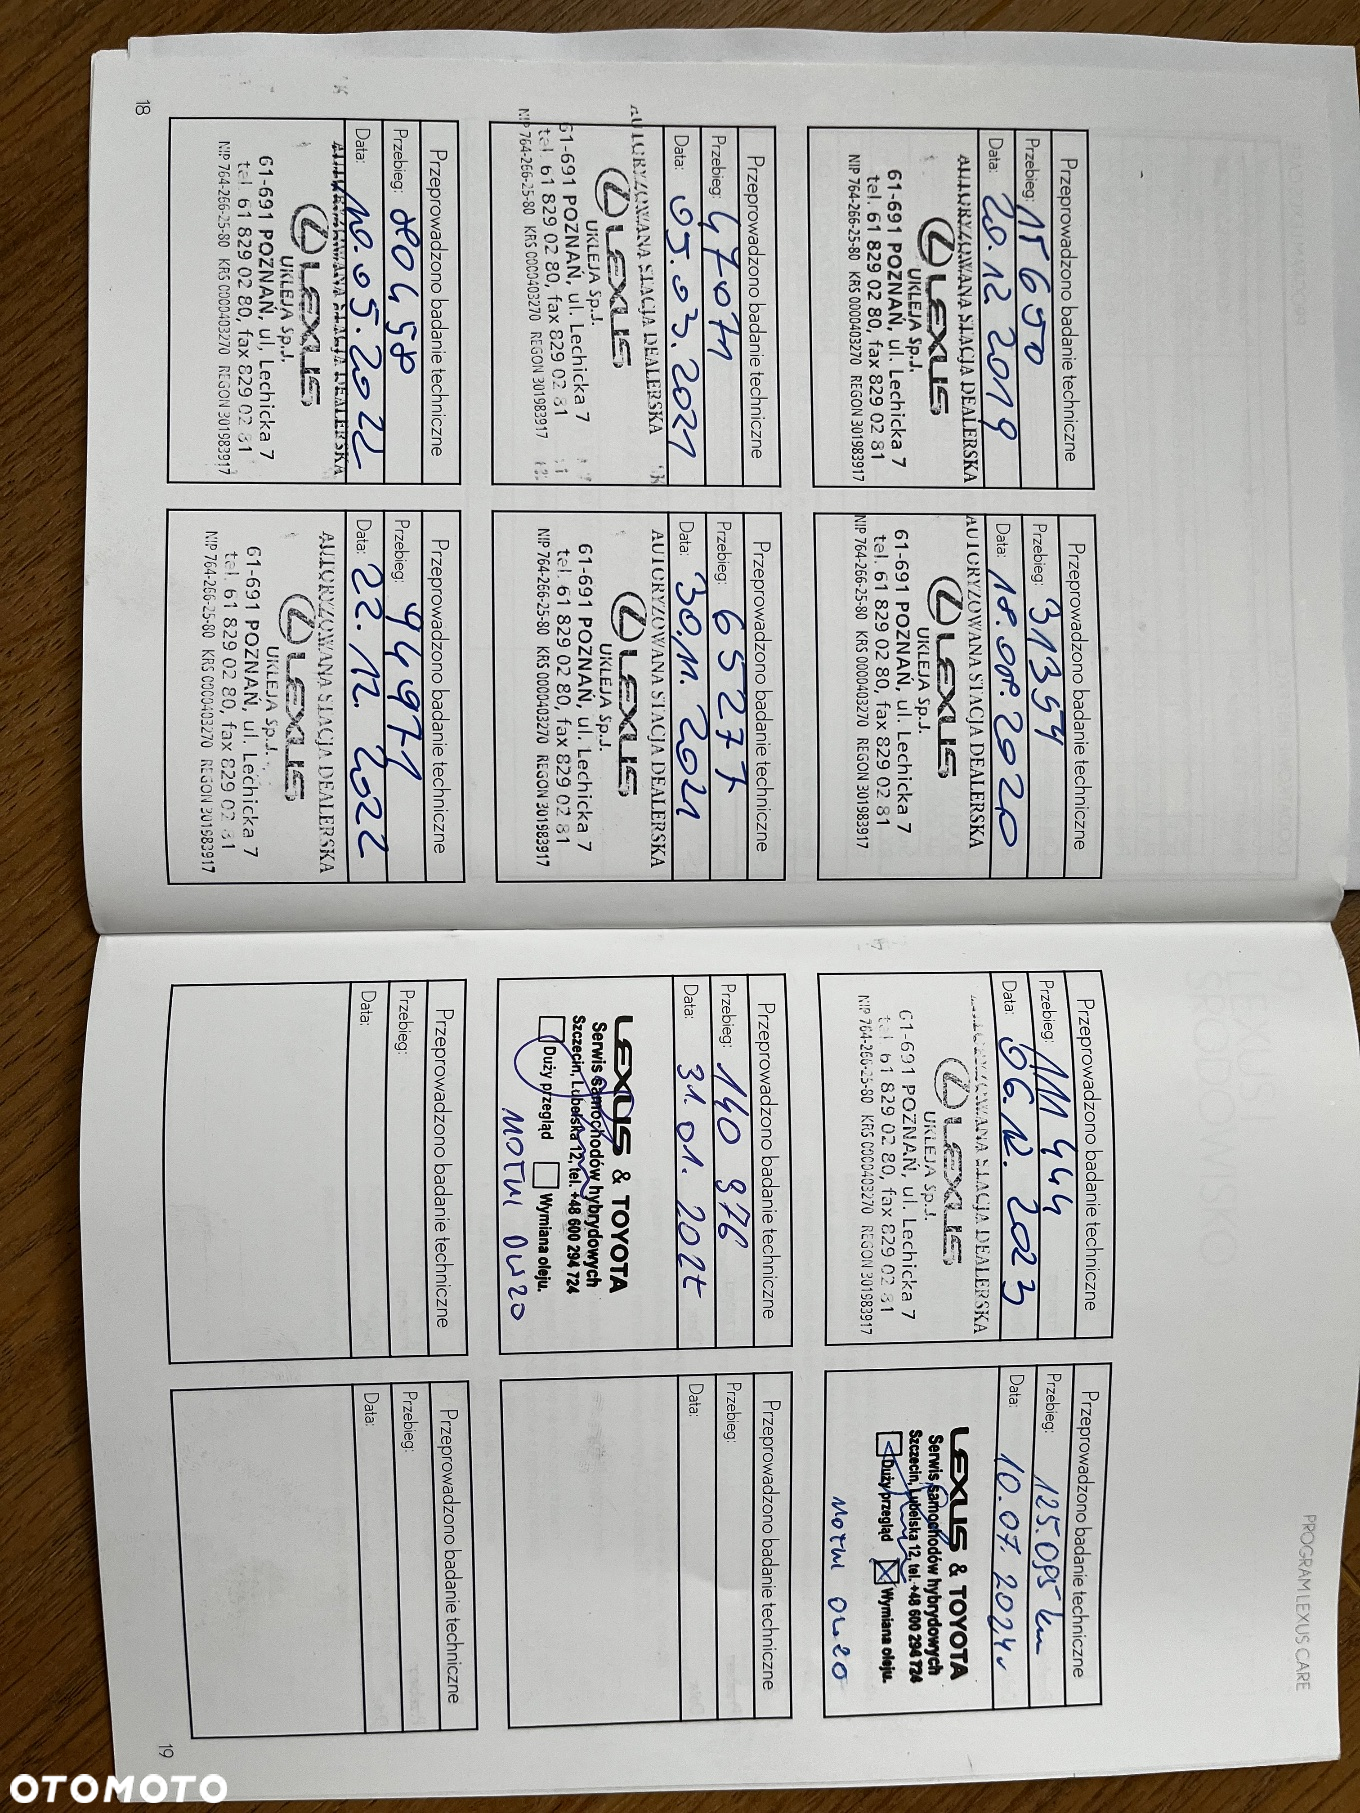 PROGRAM LEXUS CARE
Przeprowadzono badanie techniczne
Przebieg: 15650
Data: 20.12.2019
AUTORYZOWANA STACJA DEALERSKA
LEXUS
UKLEJA Sp.J.
61-691 POZNAŃ, ul. Lechicka 7
tel. 61 829 02 80, fax 829 02 81
NIP 764-266-25-80 KRS 0000403270 REGON 301983917
Przeprowadzono badanie techniczne
Przebieg: 31354
Data: 18.08.2020
AUTORYZOWANA STACJA DEALERSKA
LEXUS
UKLEJA Sp.J.
61-691 POZNAŃ, ul. Lechicka 7
tel. 61 829 02 80, fax 829 02 81
NIP 764-266-25-80 KRS 0000403270 REGON 301983917
Przeprowadzono badanie techniczne
Przebieg: 47071
Data: 05.03.2021
AUTORYZOWANA STACJA DEALERSKA
LEXUS
UKLEJA Sp.J.
61-691 POZNAŃ, ul. Lechicka 7
tel. 61 829 02 80, fax 829 02 81
NIP 764-266-25-80 KRS 0000403270 REGON 301983917
Przeprowadzono badanie techniczne
Przebieg: 65277
Data: 30.11.2021
AUTORYZOWANA STACJA DEALERSKA
LEXUS
UKLEJA Sp.J.
61-691 POZNAŃ, ul. Lechicka 7
tel. 61 829 02 80, fax 829 02 81
NIP 764-266-25-80 KRS 0000403270 REGON 301983917
Przeprowadzono badanie techniczne
Przebieg: 80458
Data: 10.05.2022
AUTORYZOWANA STACJA DEALERSKA
LEXUS
UKLEJA Sp.J.
61-691 POZNAŃ, ul. Lechicka 7
tel. 61 829 02 80, fax 829 02 81
NIP 764-266-25-80 KRS 0000403270 REGON 301983917
Przeprowadzono badanie techniczne
Przebieg: 94971
Data: 22.12.2022
AUTORYZOWANA STACJA DEALERSKA
LEXUS
UKLEJA Sp.J.
61-691 POZNAŃ, ul. Lechicka 7
tel. 61 829 02 80, fax 829 02 81
NIP 764-266-25-80 KRS 0000403270 REGON 301983917
18
Przeprowadzono badanie techniczne
Przebieg: 111444
Data: 06.12.2023
AUTORYZOWANA STACJA DEALERSKA
LEXUS
UKLEJA Sp.J.
61-691 POZNAŃ, ul. Lechicka 7
tel. 61 829 02 80, fax 829 02 81
NIP 764-266-25-80 KRS 0000403270 REGON 301983917
Przeprowadzono badanie techniczne
Przebieg: 125.095 km
Data: 10.07.2024
LEXUS & TOYOTA
Serwis samochodów hybrydowych
Szczecin, Lubelska 12, tel. +48 600 294 724
Duży przegląd Wymiana oleju.
MOTUL 0W20
Przeprowadzono badanie techniczne
Przebieg: 140 976
Data: 31.01.202t
LEXUS & TOYOTA
Serwis samochodów hybrydowych
Szczecin, Lubelska 12, tel. +48 600 294 724
Duży przegląd Wymiana oleju.
MOTUL 0W20
Przeprowadzono badanie techniczne
Przebieg:
Data:
Przeprowadzono badanie techniczne
Przebieg:
Data:
Przeprowadzono badanie techniczne
Przebieg:
Data:
19
OTOMOTO